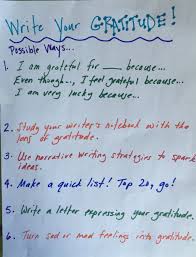 Write Your GRATITUDE!
Possible Ways...
1. I am grateful for ___ because...
Even though..., I feel grateful because...
I am very lucky because...
2. Study your writer's notebook with the
lens of gratitude.
3. Use narrative writing strategies to spark
ideas.
4. Make a quick list! Top 20, go!
5. Write a letter expressing your gratitude.
6. Turn sad or mad feelings into gratitude.